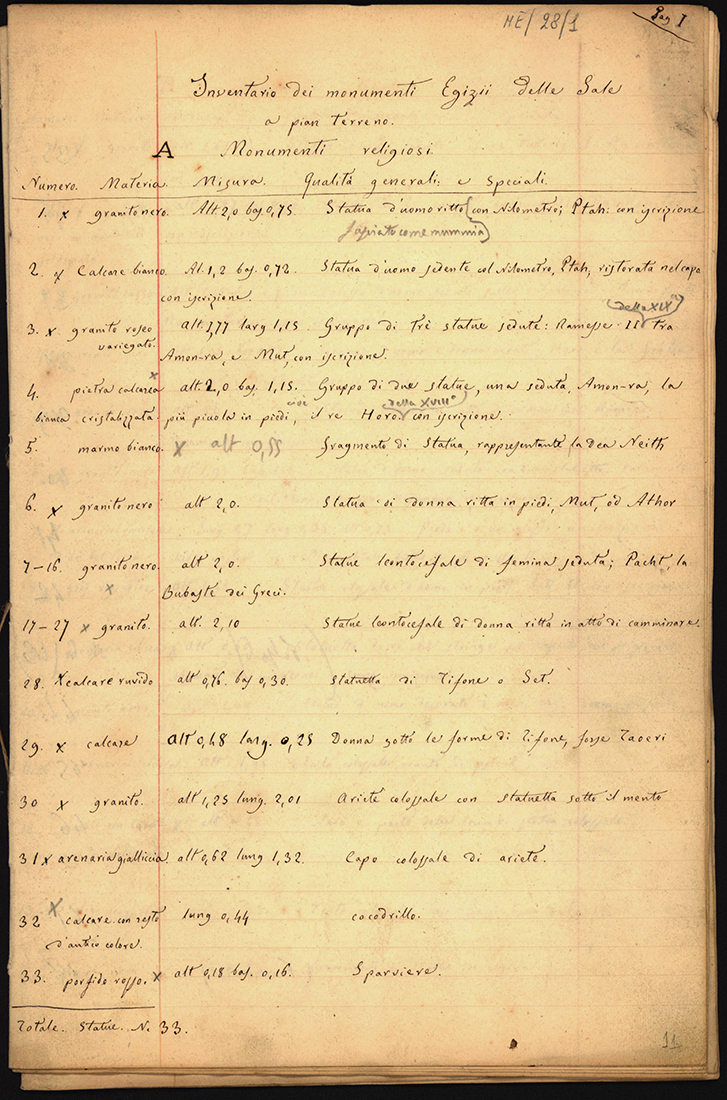 ME/28/1
Pag I
Inventario dei monumenti Egizii delle Sale
a pian terreno.
A Monumenti religiosi
Numero. Materia. Misura. Qualità generali: e speciali.
1. x granito nero. Alt 2,0 bas. 0,75. Statua d'uomo ritto (con Nilometro; Ptah: con iscrizione
fasciato come mummia)
2. x Calcare bianco. Al. 1,2 bas. 0,72. Statua d'uomo sedente col Nilometro, Ptah, ristorata nel capo
con iscrizione.
(della XIXª)
3. x granito roseo alt. 1,77 larg 1,15. Gruppo di trè statue sedute: Ramesse II tra
variegato. Amon-ra, e Mut, con iscrizione.
4. pietra calcarea x alt. 2,0 bas. 1,15. Gruppo di due statue, una seduta, Amon-ra, la
cioè della XVIIIª
bianca cristalizzata. più picola in piedi, il re Horo. con iscrizione.
5. marmo bianco. x alt 0,55 fragmento di Statua, rappresentante la Dea Neith
6. x granito nero alt 2,0. Statua di donna ritta in piedi, Mut, od Athor
7-16. granito nero. alt 2,0. Statue leontocefale di femina seduta; Pacht, la
x Bubaste dei Greci.
17-27 x granito. alt. 2,10 Statue leontocefale di donna ritta in atto di camminare.
28. x calcare ruvido alt 0,76. bas 0,30. Statuetta di Tifone o Set.
29. x calcare alt 0,48 larg. 0,25 Donna sotto le forme di Tifone, forse Taoeri
30 x granito. alt 1,25 lung. 2,01 Ariete colossale con statuetta sotto il mento
31 x arenaria gialliccia alt 0,62 lung 1,32. Capo colossale di ariete.
32 x calcare con resto lung 0,44 cocodrillo.
d'antico colore.
33. porfido rosso. x alt 0,18 bas. 0,16. Sparviere.
Totale. Statue. N. 33.
11